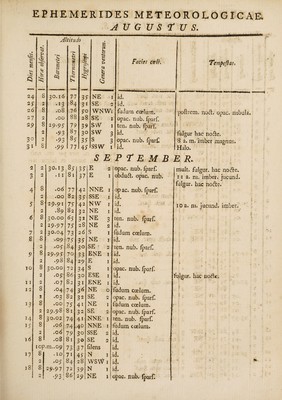 EPHEMERIDES METEOROLOGICÆ.
AUGUSTUS.
Dies mensis. Hora observat. Altitudo Barometri Thermometri Hygrometri Genera ventorum. Facies cœli. Tempestas.
24 8 30.16 77 35 NE 1 id.
25 2 .13 84 31 SE 2 id.
26 8 .08 76 30 WNW 1 sudum cœlum. postrem. noct. opac. nebula.
27 2 .00 88 28 SE 1 opac. nub. sparf.
28 8 29.95 79 39 SW 1 ten. nub. sparf.
2 .93 87 30 SW 3 id. fulgur hac nocte.
30 8 .93 83 35 S 3 opac. nub. sparf. 8 a. m. imber magnus.
31 8 .99 77 45 SSW 1 id. Halo.
SEPTEMBER.
2 2 30.13 85 35 E 2 opac. nub. sparf. mult. fulgur. hac nocte.
3 2 .11 81 37 E 1 obduct. opac. nub. 11 a. m. imber. jocund.
fulgur. hac nocte.
4 8 .06 77 41 NNE 1 opac. nub. sparf.
2 .00 82 35 SSE 1 id.
5 8 29.91 77 41 NW 1 id. 10 a. m. jocund. imber.
2 .89 82 32 NE 1 id.
6 8 .90 76 30 NE 3 ten. nub. sparf.
2 29.97 75 28 NE 2 id.
7 8 30.04 73 26 S 1 sudum cœlum.
8 8 .09 75 35 NE 1 id.
2 .05 84 30 SE 2 ten. nub. sparf.
9 8 29.95 79 33 ENE 1 id.
2 .98 84 29 E 1 id.
10 8 30.00 72 34 S 1 opac. nub. sparf.
2 .05 86 32 ESE 1 id. fulgur. hac nocte.
11 8 .07 82 31 ENE 1 id.
12 8 .04 74 36 NE 0 sudum cœlum.
2 .03 82 31 SE 2 opac. nub. sparf.
13 8 .01 74 41 NE 1 sudum cœlum.
2 29.98 82 32 SE 2 opac. nub. sparf.
14 8 30.02 74 41 NNE 1 ten. nub. sparf.
15 8 .06 74 40 NNE 1 sudum cœlum.
2 .06 79 30 SSE 2 id.
16 8 .08 81 30 SE 2 id.
10p.m. .09 75 37 silens id.
17 8 .10 71 45 N 1 id.
2 .05 84 28 WSW 1 id.
18 8 29.97 72 39 N 1 id.
2 .93 86 29 NE 1 opac. nub. sparf.